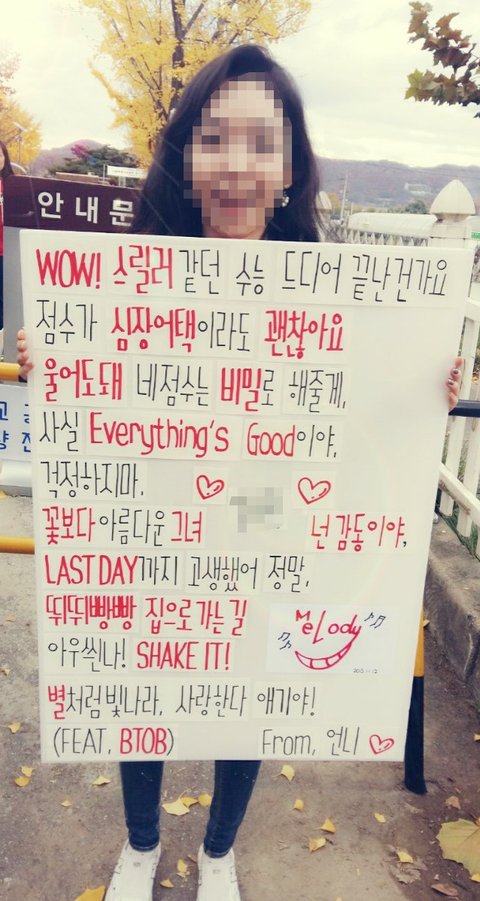 안내문
WOW! 스릴러같던 수능 드디어 끝난건가요
점수가 심장어택이라도 괜찮아요
울어도돼 네점수는 비밀로 해줄게,
사실 Everything's Good이야,
걱정하지마.
꽃보다아름다운그녀 넌감동이야,
LAST DAY까지 고생했어 정말,
뛰뛰빵빵 집으로가는길
아우씐나! SHAKE IT!
MeLody
2015.11.12
별처럼빛나라, 사랑한다 얘기야!
(FEAT. BTOB) From. 언니